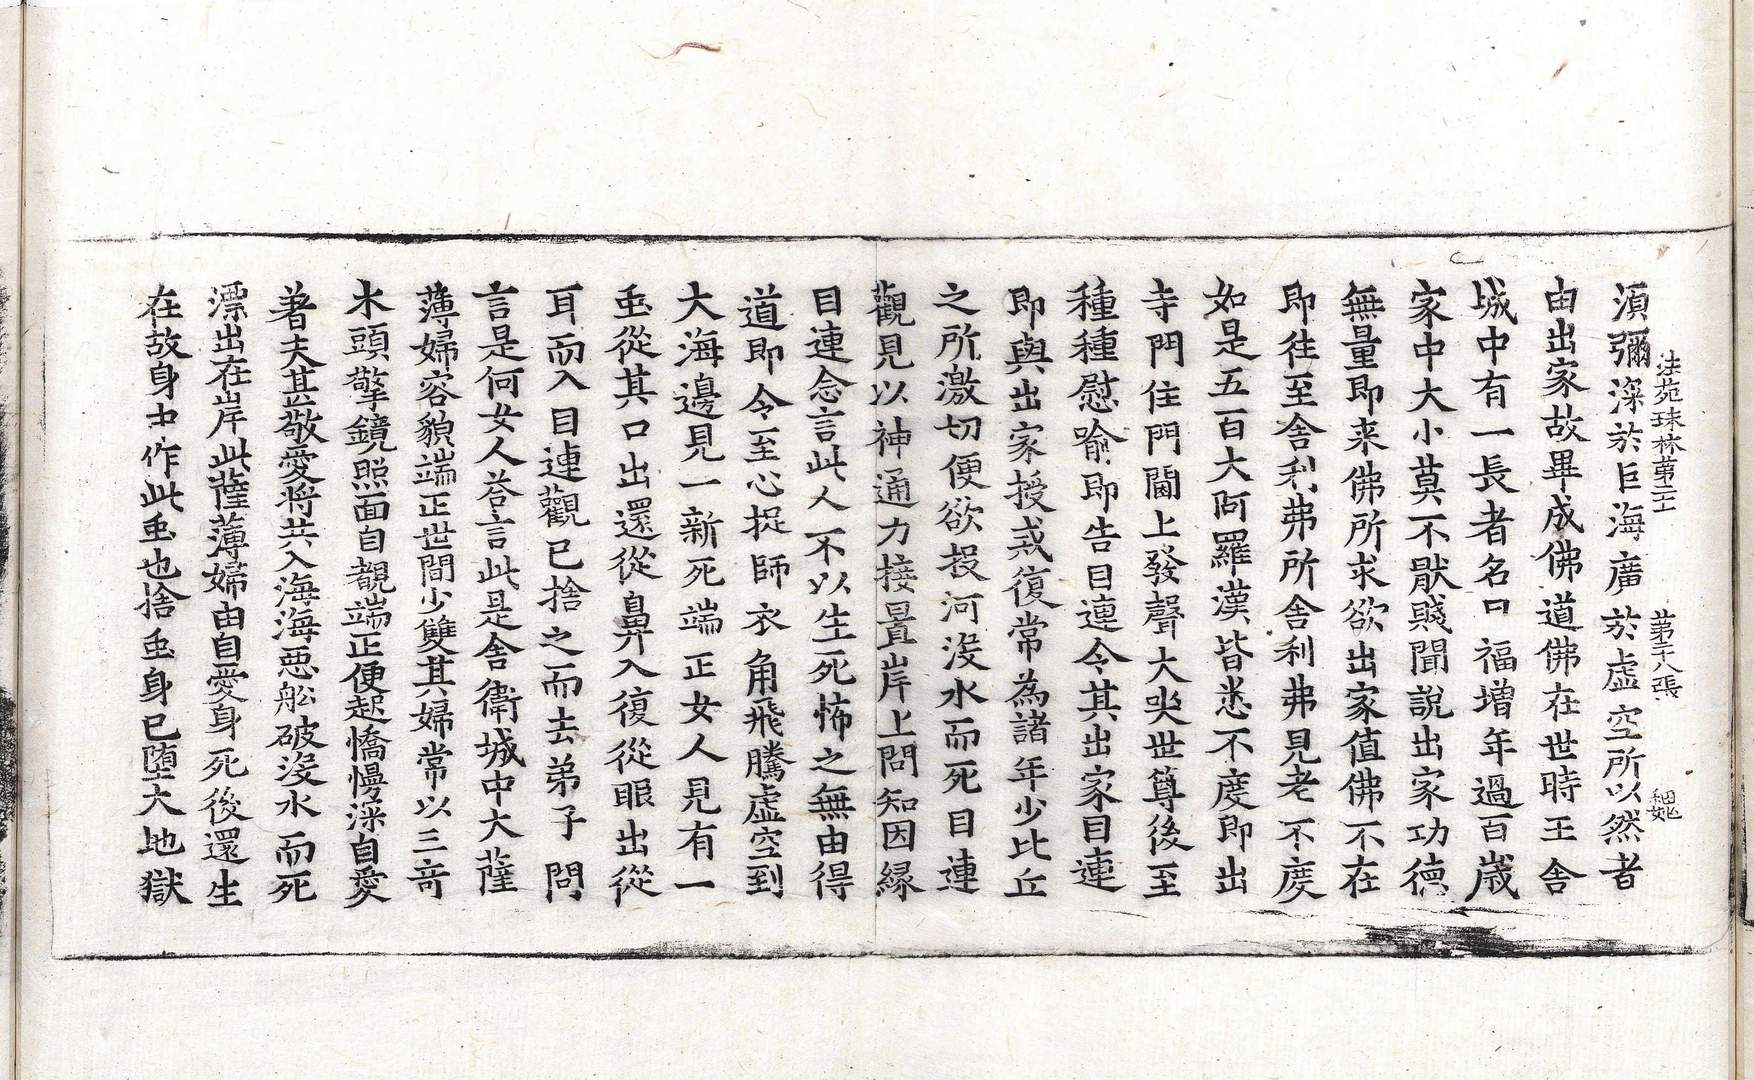 法苑珠林苐二十二 苐十八張 魏
湏彌深於巨海廣於虚空所以然者
由出家故畢成佛道佛在世時王舎
城中有一長者名曰福增年過百歳
家中大小莫不猒賤聞說出家功德
無量即来佛所求欲出家值佛不在
即往至舎利弗所舎利弗見老不度
如是五百大阿羅漢皆悉不度即出
寺門住門閫上發聲大哭世尊後至
種種慰喻即告目連令其出家目連
即與出家授戒復常為諸年少比丘
之所激切便欲投河没水而死目連
觀見以神通力接置岸上問知因縁
目連念言此人不以生死怖之無由得
道即令至心捉師衣角飛騰虚空到
大海邊見一新死端正女人見有一
䖝從其口出還從鼻入復從眼出從
耳而入目連觀已捨之而去弟子問
言是何女人荅言此是舎衛城中大薩
薄婦容貌端正世間少雙其婦常以三竒
木頭擎鏡照面自覩端正便起憍慢深自愛
著夫甚敬愛將共入海海惡舩破没水而死
漂出在岸此薩薄婦由自愛身死後還生
在故身中作此䖝也捨䖝身已墮大地獄